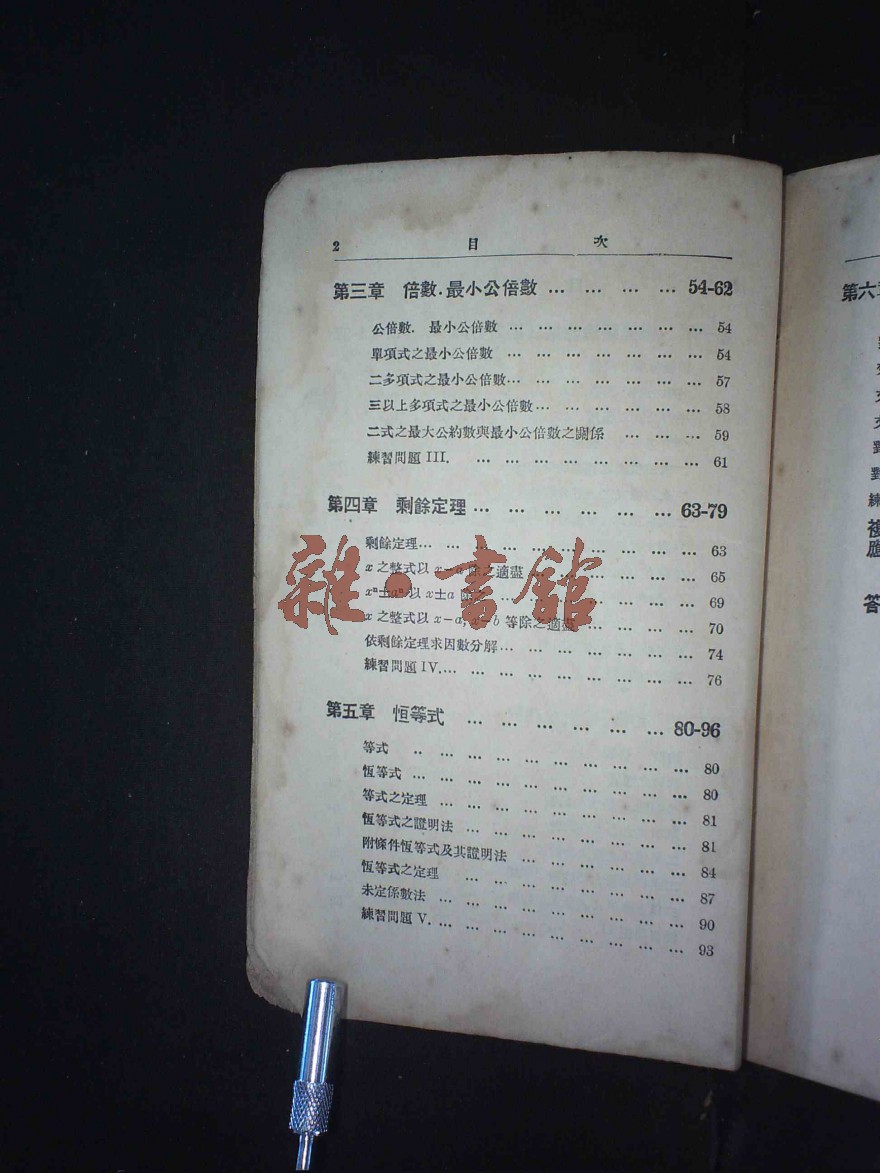 2 目 次
第三章 倍數.最小公倍數 … … … … 54-62
公倍數. 最小公倍數 … … … … … … … 54
單項式之最小公倍數 … … … … … … … 54
二多項式之最小公倍數… … … … … … … 57
三以上多項式之最小公倍數… … … … … … 58
二式之最大公約數與最小公倍數之關係 … … … … 59
練習問題 III. … … … … … … … … 61
第四章 剩餘定理 … … … … … … 63-79
剩餘定理… … … … … … … … … … 63
x 之整式以 x−a 除之適盡 … … … … … … 65
xⁿ±aⁿ 以 x±a 除之 … … … … … … … 69
x 之整式以 x−a, x−b 等除之適盡 … … … … … 70
依剩餘定理求因數分解… … … … … … … … 74
練習問題 IV.… … … … … … … … … 76
第五章 恒等式 … … … … … … 80-96
等式 ‥ … … … … … … … … … … 80
恆等式 … … … … … … … … … … 80
等式之定理 … … … … … … … … … 81
恆等式之證明法 … … … … … … … … 81
附條件恆等式及其證明法 … … … … … … … 84
恆等式之定理 … … … … … … … … 87
未定係數法 … … … … … … … … … 90
練習問題 V. … … … … … … … … … 93
雜·書館
第六
複
應
答